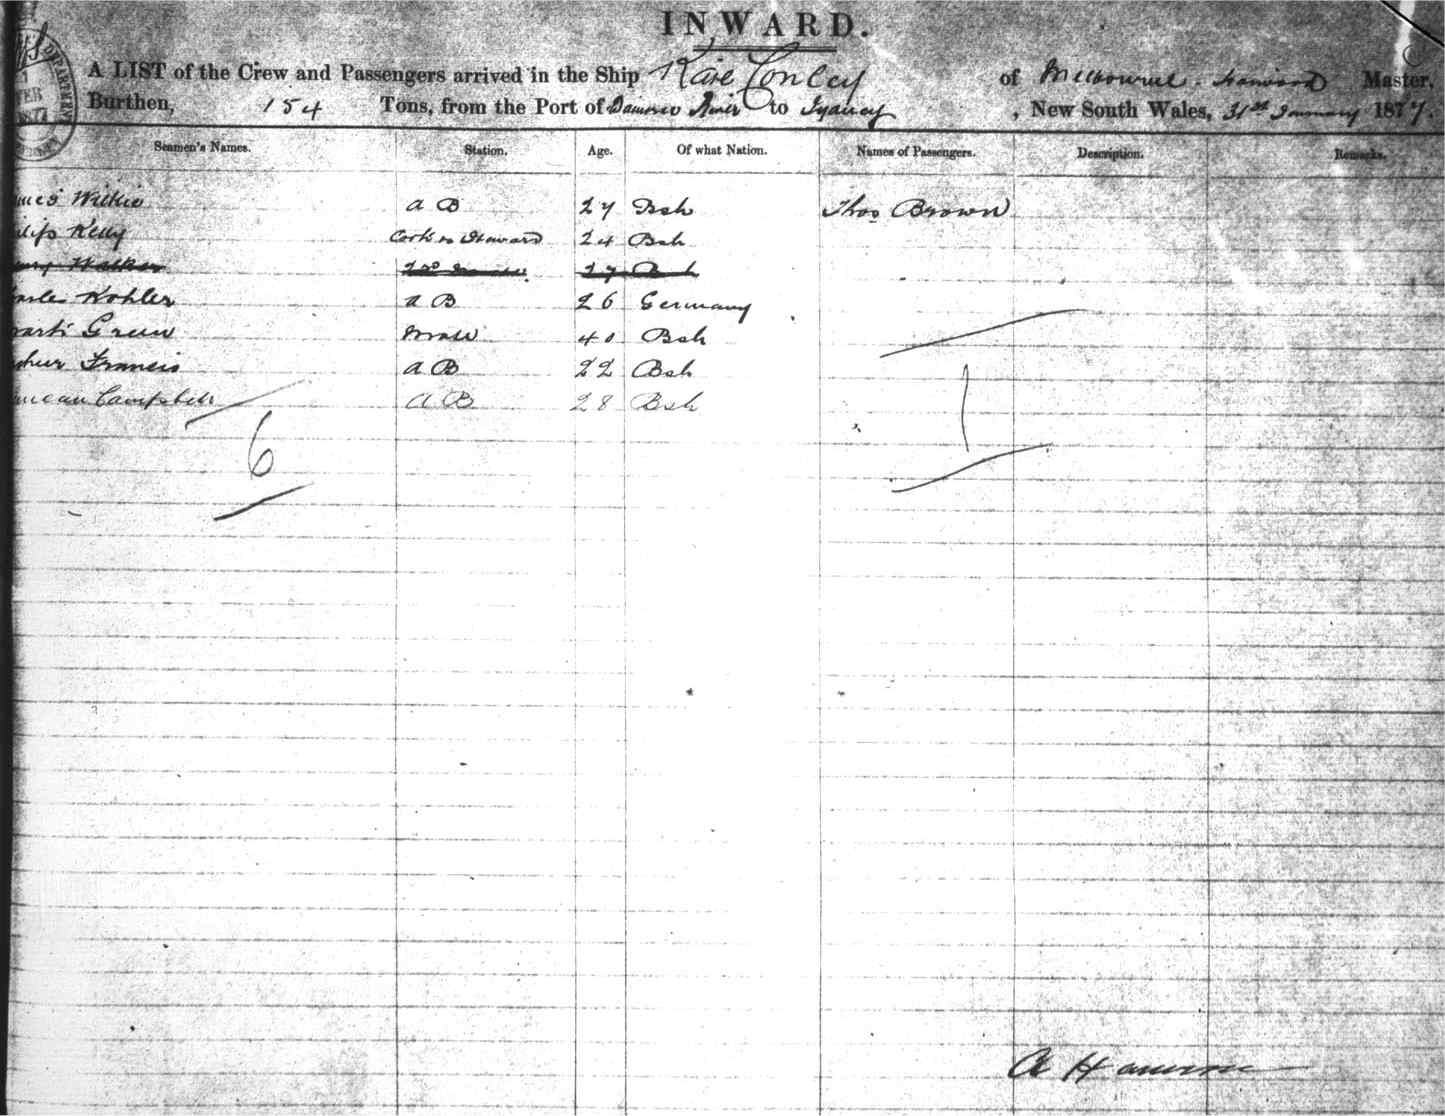 INWARD.
A LIST of the Crew and Passengers arrived in the Ship Kate Conley of Melbourne. Master,
Burthen, 154 Tons, from the Port of River to Sydney, New South Wales, 31st January 1877.
Seamen's Names. Station. Age. Of what Nation. Names of Passengers. Description. Remarks.
Wilkie A B 27 Bsh Thos Brown
Kelly Cook & Steward 24 Bsh
Walker 27 Bsh
Kohler A B 26 Germany
Green Mate 40 Bsh
Francis A B 22 Bsh
Campbell A B 28 Bsh
6 1
A